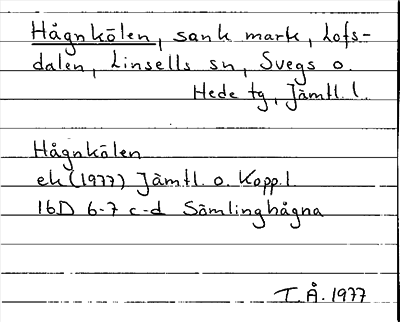 Hågnkölen, sank mark, Lofs-
dalen, Linsells sn, Svegs o.
Hede tg, Jämtl. l.
Hågnkölen
ek (1977) Jämtl. o. Kopp.l.
16D 6-7 c-d Sömlinghågna
T.Å. 1977